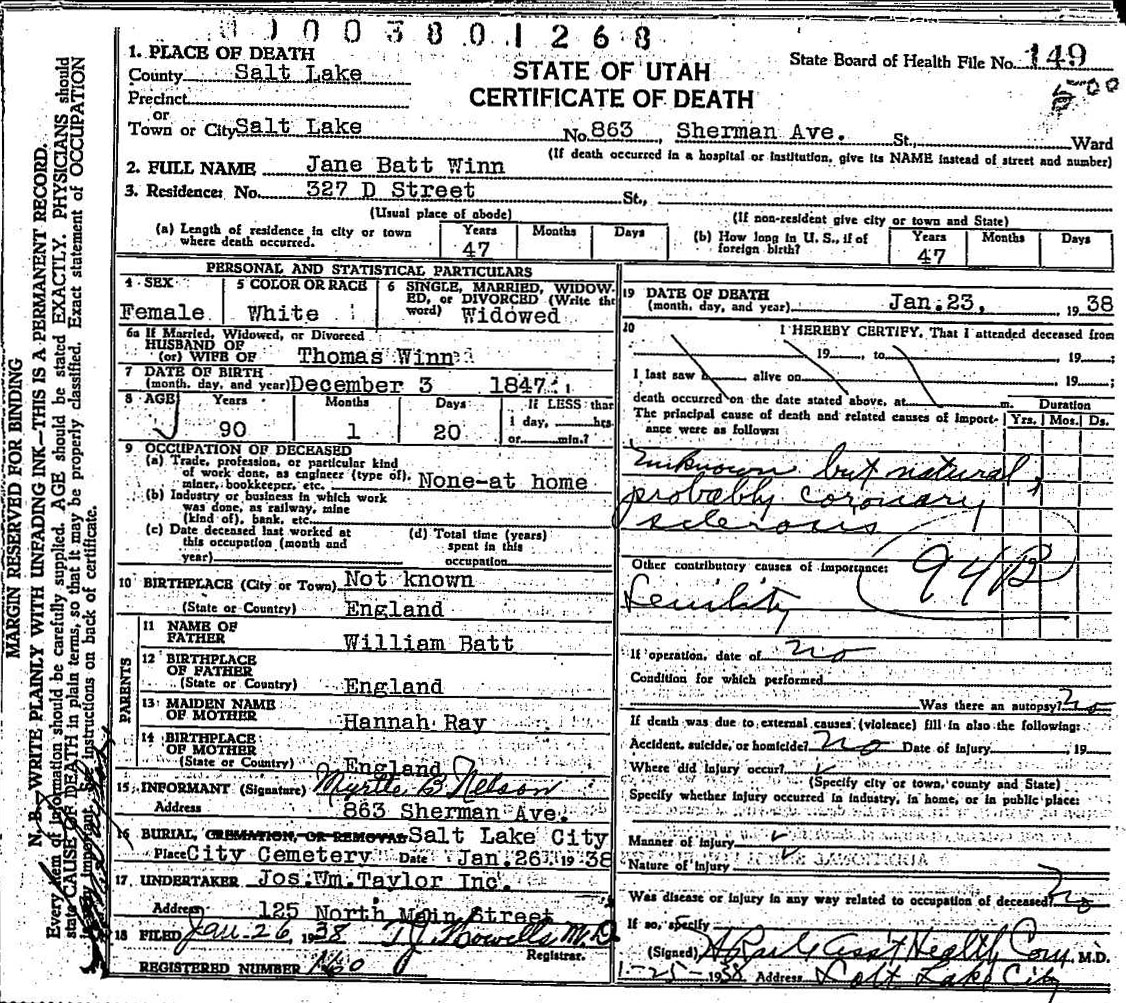 0 0 0 3 8 0 1 2 6 8
1. PLACE OF DEATH
County Salt Lake
Precinct
or
Town or City Salt Lake
STATE OF UTAH
CERTIFICATE OF DEATH
State Board of Health File No. 149
No. 863 Sherman Ave. St., Ward
(If death occurred in a hospital or institution, give its NAME instead of street and number)
2. FULL NAME Jane Batt Winn
3. Residence: No. 327 D Street St.,
(Usual place of abode)
(If non-resident give city or town and State)
(a) Length of residence in city or town where death occurred. Years 47 Months Days
(b) How long in U. S., if of foreign birth? Years 47 Months Days
PERSONAL AND STATISTICAL PARTICULARS
4 SEX Female
5 COLOR OR RACE White
6 SINGLE, MARRIED, WIDOWED, or DIVORCED (Write the word) Widowed
6a If Married, Widowed, or Divorced
HUSBAND OF
(or) WIFE OF Thomas Winn
7 DATE OF BIRTH
(month, day, and year) December 3 1847
8 AGE Years 90 Months 1 Days 20 If LESS than 1 day, hrs or min.?
9 OCCUPATION OF DECEASED
(a) Trade, profession, or particular kind of work done, as engineer (type of), miner, bookkeeper, etc. None-at home
(b) Industry or business in which work was done, as railway, mine (kind of), bank, etc.
(c) Date deceased last worked at this occupation (month and year)
(d) Total time (years) spent in this occupation
10 BIRTHPLACE (City or Town) Not known
(State or Country) England
PARENTS
11 NAME OF FATHER William Batt
12 BIRTHPLACE OF FATHER
(State or Country) England
13 MAIDEN NAME OF MOTHER Hannah Ray
14 BIRTHPLACE OF MOTHER
(State or Country) England
15 INFORMANT (Signature) Myrtle B Nelson
Address 863 Sherman Ave.
16 BURIAL, CREMATION, OR REMOVAL Salt Lake City
Place City Cemetery Date Jan. 26 1938
17 UNDERTAKER Jos. Wm. Taylor Inc.
Address 125 North Main Street
18 FILED Jan-26, 1938 T.J. Howells M.D.
Registrar.
REGISTERED NUMBER 160
19 DATE OF DEATH
(month, day, and year) Jan. 23, 1938
20 I HEREBY CERTIFY, That I attended deceased from
19, to 19;
I last saw h alive on 19;
death occurred on the date stated above, at m.
The principal cause of death and related causes of importance were as follows:
Duration
Yrs. Mos. Ds.
Unknown but natural,
probably coronary
sclerosis
94B
Other contributory causes of importance:
Senility
If operation, date of no
Condition for which performed
Was there an autopsy? no
If death was due to external causes (violence) fill in also the following:
Accident, suicide, or homicide? no Date of injury, 19
Where did injury occur?
(Specify city or town, county and State)
Specify whether injury occurred in industry, in home, or in public place:
Manner of injury
Nature of injury
Was disease or injury in any way related to occupation of deceased? no
If so, specify
(Signed) Ass't Health Com M.D.
1-25-1938 Address Salt Lake City
MARGIN RESERVED FOR BINDING
N. B.—WRITE PLAINLY WITH UNFADING INK—THIS IS A PERMANENT RECORD.
Every item of information should be carefully supplied. AGE should be stated EXACTLY. PHYSICIANS should
state CAUSE OF DEATH in plain terms, so that it may be properly classified. Exact statement of OCCUPATION
is very important. See instructions on back of certificate.